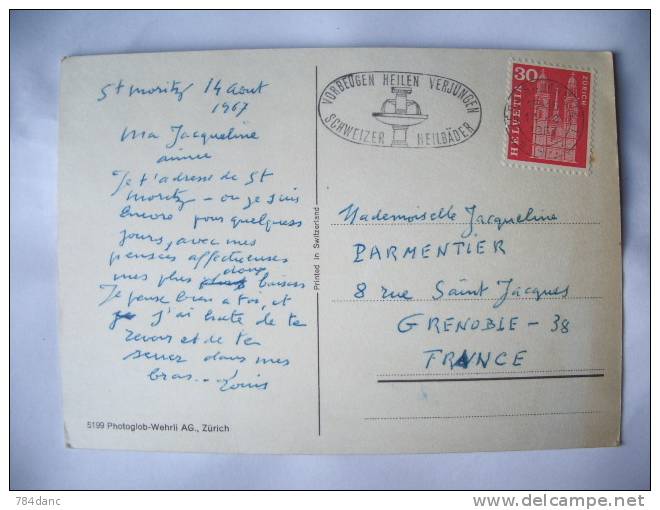 St Moritz 14 Aout
1967
Ma Jacqueline
aimée
Je t'adresse de St
Moritz - où je suis
Encore pour quelques
jours, avec mes
pensées affectueuses
mes plus doux baisers
Je pense bien à toi, et
j'ai hate de te
revoir et de te
serrer dans mes
bras... Louis
5199 Photoglob-Wehrli AG., Zürich
Printed in Switzerland
VORBEUGEN HEILEN VERJÜNGEN
SCHWEIZER HEILBÄDER
30
HELVETIA
ZÜRICH
Mademoiselle Jacqueline
PARMENTIER
8 rue Saint Jacques
GRENOBLE - 38
FRANCE
784danc
http://www.delcampe.net